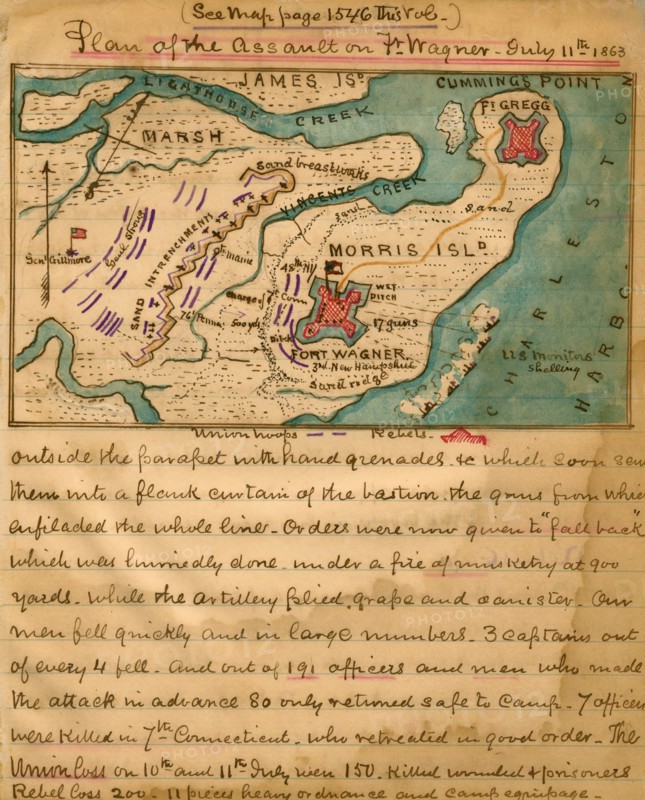 (See Map page 1546 This Vol.)
Plan of the Assault on Ft Wagner - July 11th 1863
LIGHTHOUSE CREEK
JAMES ISD
CUMMINGS POINT
FT GREGG
MARSH
Sand breastworks
VINCENTS CREEK
sand
sand
Genl Gillmore
Genl Strong
SAND INTRENCHMENT
9th maine
MORRIS ISLD
48th NY
WET DITCH
charge of
7th Conn
76th Penna
500 yds
Ditch
17 guns
FORT WAGNER
3rd New Hampshire
Sand ridge
US Monitors shelling
CHARLESTON
HARBO
Union troops - - Rebels -
outside the parapet with hand grenades. &c which soon sen
them into a flank curtain of the bastion. the guns from whic
enfiladed the whole line - Orders were now given to "fall back"
which was hurriedly done. under a fire of musketry at 900
yards. while the artillery plied. grape and canister - Our
men fell quickly and in large numbers - 3 captains out
of every 4 fell - And out of 191 officers and men who made
the attack in advance 80 only returned safe to Camp - 7 officer
were killed in 7th Connecticut - who retreated in good order - The
Union loss on 10th and 11th July were 150. Killed wounded & prisoners
Rebel loss 200 - 11 pieces heavy ordnance and camp equipage -